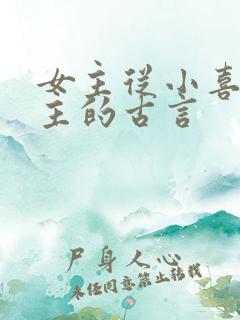 女主从小喜
主的古言
尸身人心
未经同意禁止转载